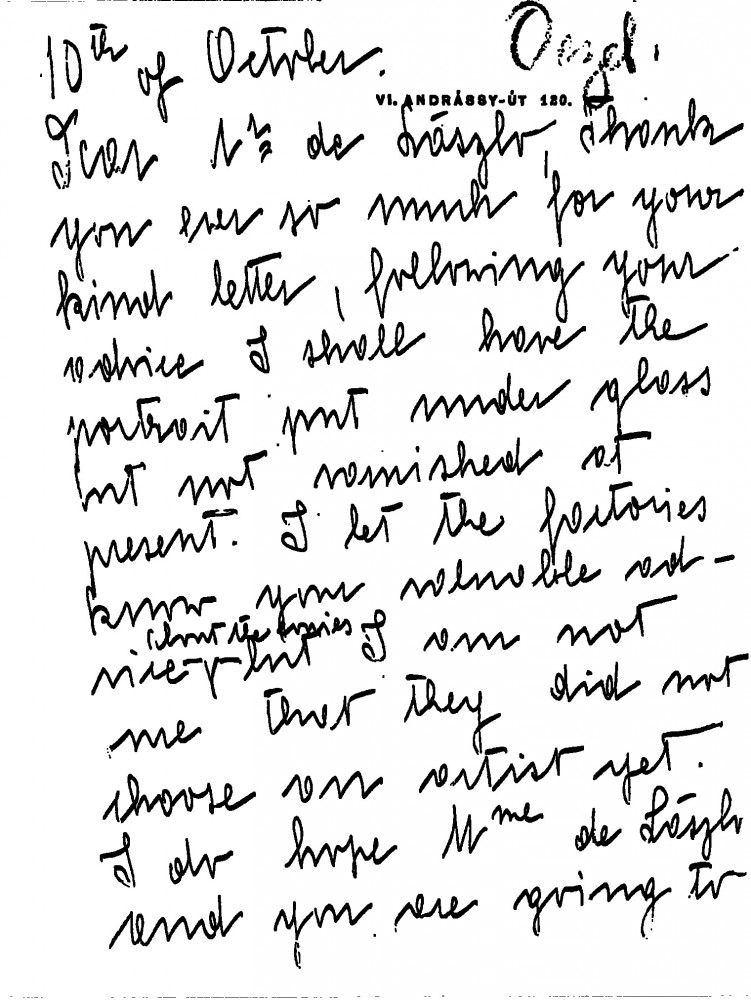 10th of October.
VI. ANDRÁSSY-ÚT 120.
Dear Mr de László, Thank
you ever so much for your
kind letter, following your
advice I shall have the
portrait put under glass
but not varnished at
present. I let the factories
know your valuable ad-
(about the copies
vice - but I am not
me that they did not
choose an artist yet.
I do hope Mme de László
and you are going to